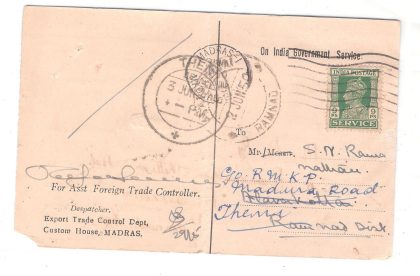 On India Government Service.
MADRAS
THENI
3 JUN
2 JUN 50
RAMNAD
INDIA POSTAGE
SERVICE
To
Mr./Messrs. S. N. Rama
nathan
C/o R.M.K.P.
Madura Road
Theni
Ramnad Dist
For Asst Foreign Trade Controller.
Despatcher.
Export Trade Control Dept,
Custom House, MADRAS.